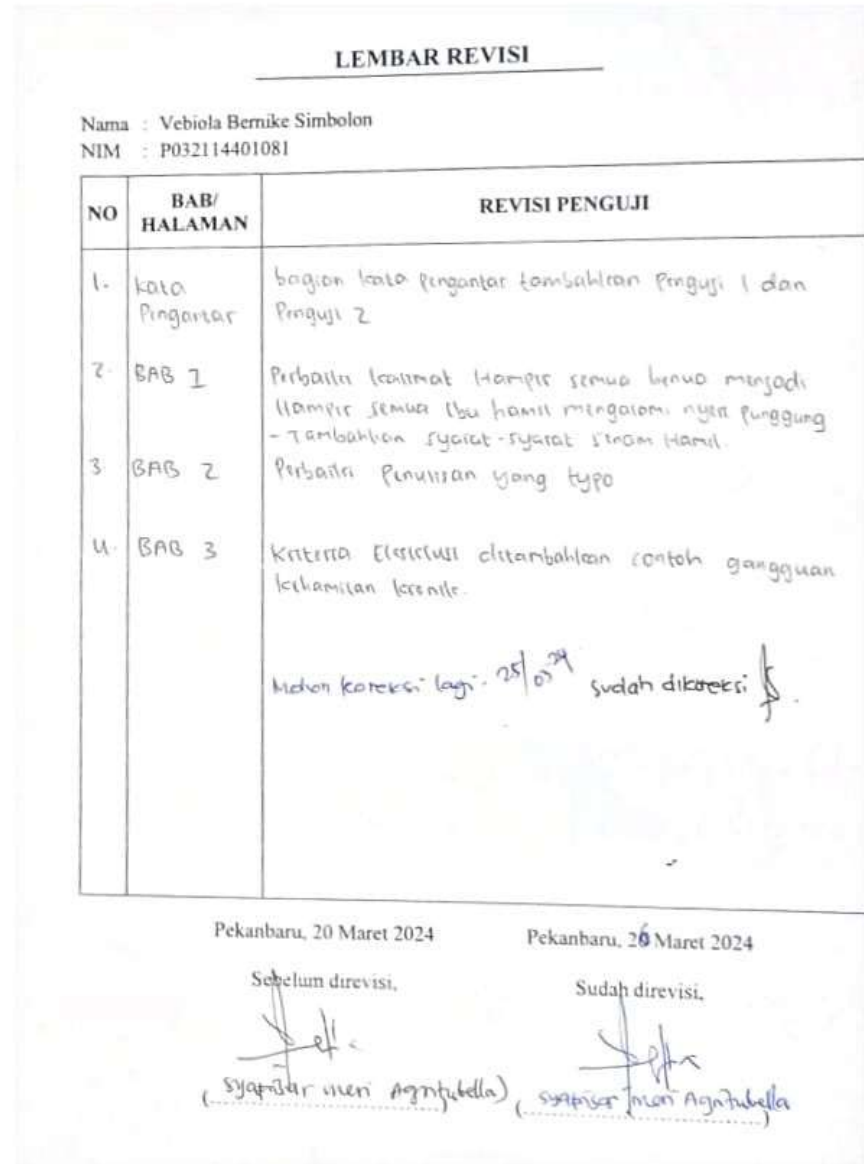 LEMBAR REVISI
Nama : Vebiola Bernike Simbolon
NIM : P032114401081
NO
BAB/
HALAMAN
REVISI PENGUJI
1.
Kata
Pengantar
bagian kata pengantar tambahkan Penguji 1 dan
Penguji 2
2.
BAB 1
Perbaiki kalimat Hampir semua benua menjadi
Hampir semua Ibu hamil mengalami nyeri punggung
- Tambahkan syarat-syarat senam Hamil.
3
BAB 2
Perbaiki Penulisan yang typo
4.
BAB 3
Kriteria Eksklusi ditambahkan contoh gangguan
kehamilan kronik.
Mohon koreksi lagi. 25/03 24 sudah dikoreksi
Pekanbaru, 20 Maret 2024
Pekanbaru, 26 Maret 2024
Sebelum direvisi,
Sudah direvisi,
( Meri Agritubella)
( Meri Agritubella
)